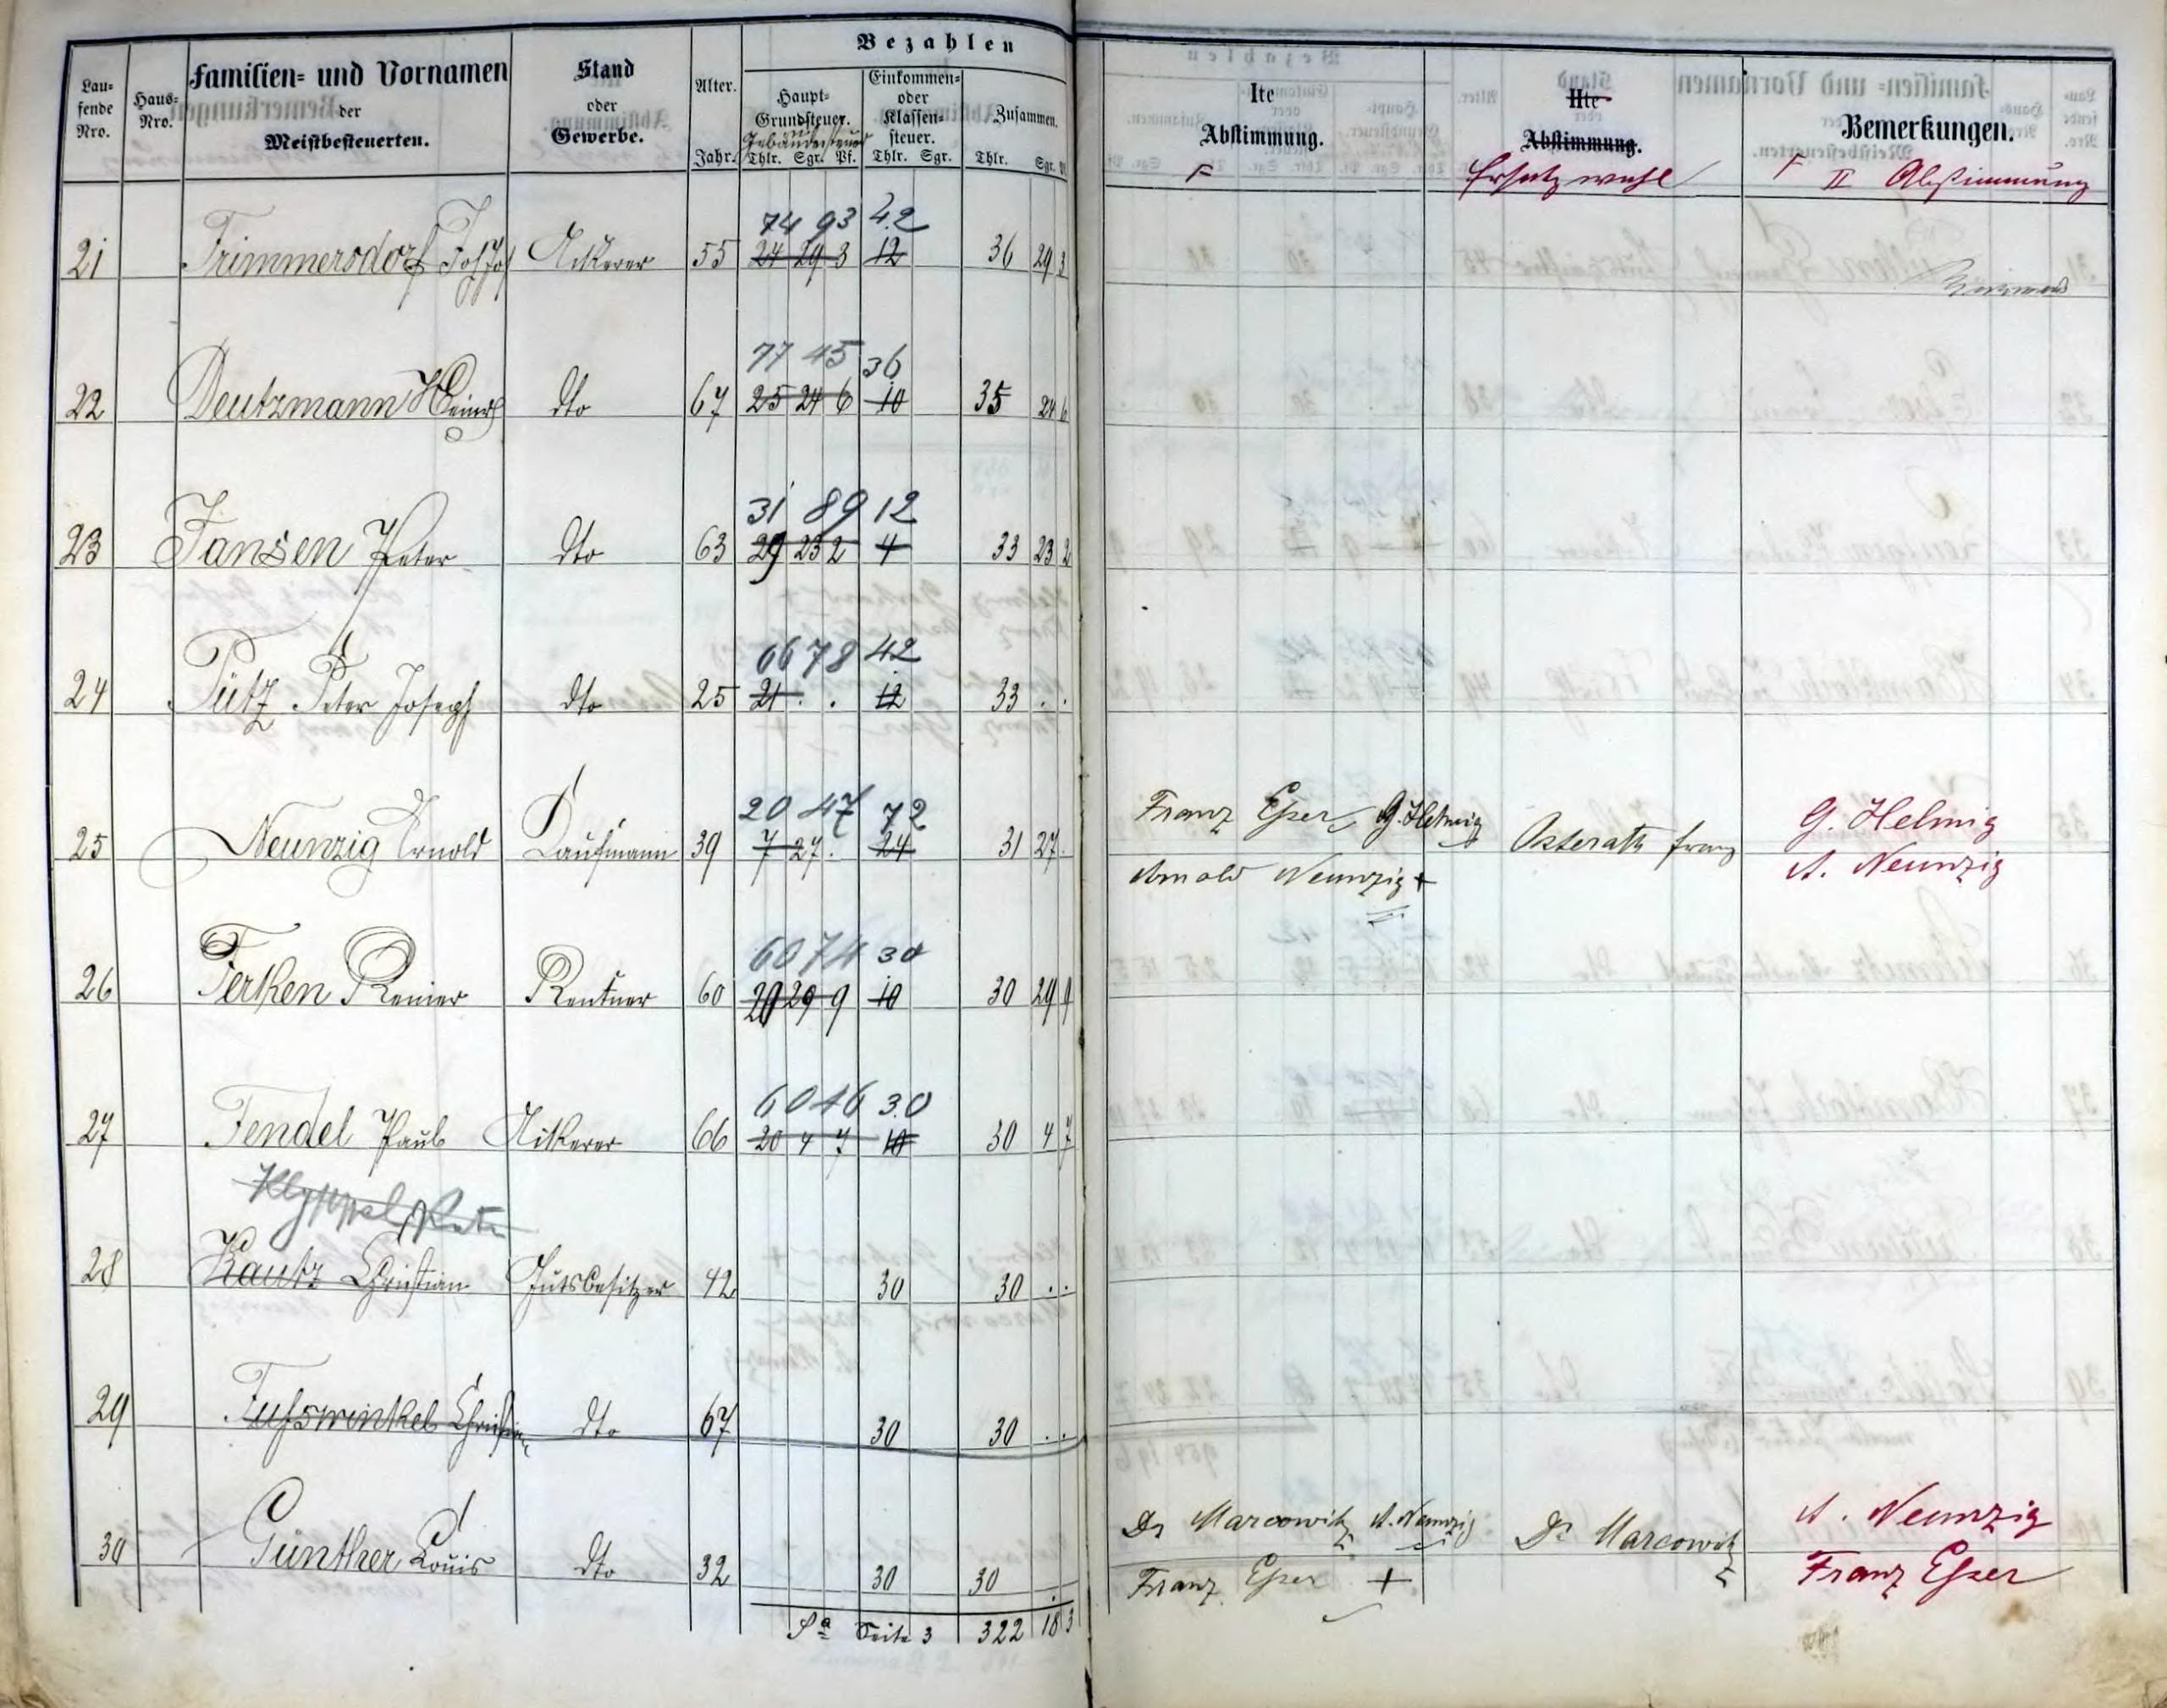 Bezahlen
Lau=
fende
Nro.
Haus=
Nro.
Familien= und Vornamen
der
Meistbesteuerten.
Stand
oder
Gewerbe.
Alter.
Jahr.
Haupt=
Grundsteuer.
Gebäudesteuer
Thlr. Sgr. Pf.
Einkommen=
oder
Klassen=
steuer.
Thlr. Sgr.
Zusammen.
Thlr. Sgr.
Ite
Abstimmung.
IIte
Abstimmung.
Ersatzwahl
Bemerkungen.
II Abstimmung
74 93 42
21 Trimmersdorf Ackerer 55 24 29 3 12 36 29 3
77 45 36
22 Deutzmann Heinr dto 67 25 24 6 10 35 24 6
31 89 12
23 Jansen Peter dto 63 29 23 2 4 33 23 2
66 78 42
24 Pütz Peter Joseph dto 25 21 . . 12 33 . .
20 47 72
25 Neunzig Arnold Kaufmann 39 7 27 . 24 31 27 Franz Esser G. Helmig Osterath franz G. Helmig
Arnold Neunzig + A. Neunzig
60 74 30
26 Ferken Reiner Rentner 60 20 29 9 10 30 29 9
60 46 30
27 Fendel Paul Ackerer 66 20 4 7 10 30 4 7
28 Kautz Christian Gutsbesitzer 42 30 30 . .
29 Fuhswinkel dto 67 30 30 . .
30 Günther Louis dto 32 30 30 Dr Marcowitz A. Neunzig Dr Marcowitz A. Neunzig
Franz Esser + Franz Esser
Sa Seite 3 322 18 3